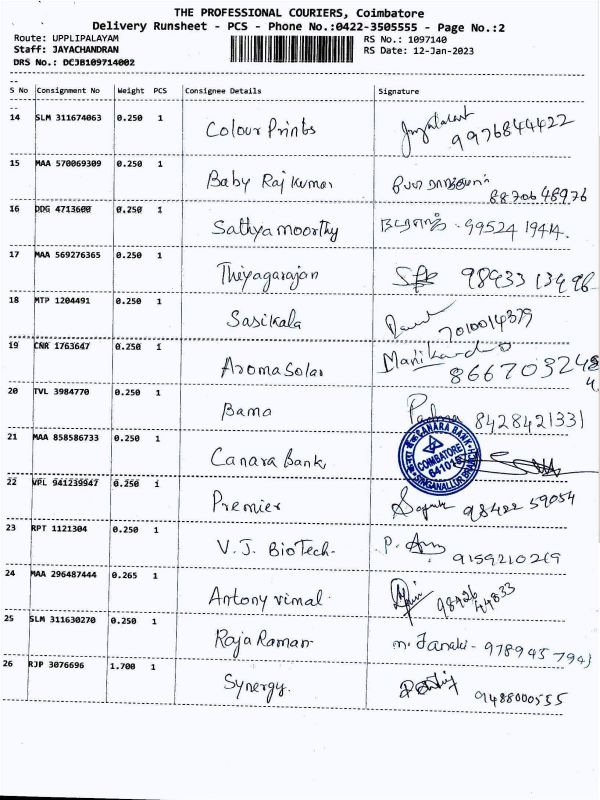 THE PROFESSIONAL COURIERS, Coimbatore
Delivery Runsheet - PCS - Phone No.:0422-3505555 - Page No.:2
Route: UPPLIPALAYAM RS No.: 1097140
Staff: JAYACHANDRAN RS Date: 12-Jan-2023
DRS No.: DCJB109714002
S No Consignment No Weight PCS Consignee Details Signature
14 SLM 311674063 0.250 1 Colour Prints 9976844422
15 MAA 570069309 0.250 1 Baby Raj kumar 88706 48976
16 DDG 4713600 0.250 1 Sathyamoorthy 99524 19414.
17 MAA 569276365 0.250 1 Thiyagarajan 98933 13496
18 MTP 1204491 0.250 1 Sasikala 7010014379
19 CNR 1763647 0.250 1 Aroma Solar Manikando
20 TVL 3984770 0.250 1 Bama Padma 8428421331
21 MAA 858586733 0.250 1 Canara Bank CANARA BANK COIMBATORE SINGANALLUR BRANCH
22 VPL 941239947 0.250 1 Premier 98422 59054
23 RPT 1121304 0.250 1 V.J. BioTech. P. 9159210219
24 MAA 296487444 0.265 1 Antony vimal 98426 44833
25 SLM 311630270 0.250 1 Raja Raman m. Janaki - 978945 7943
26 RJP 3076696 1.700 1 Synergy. 9488000555